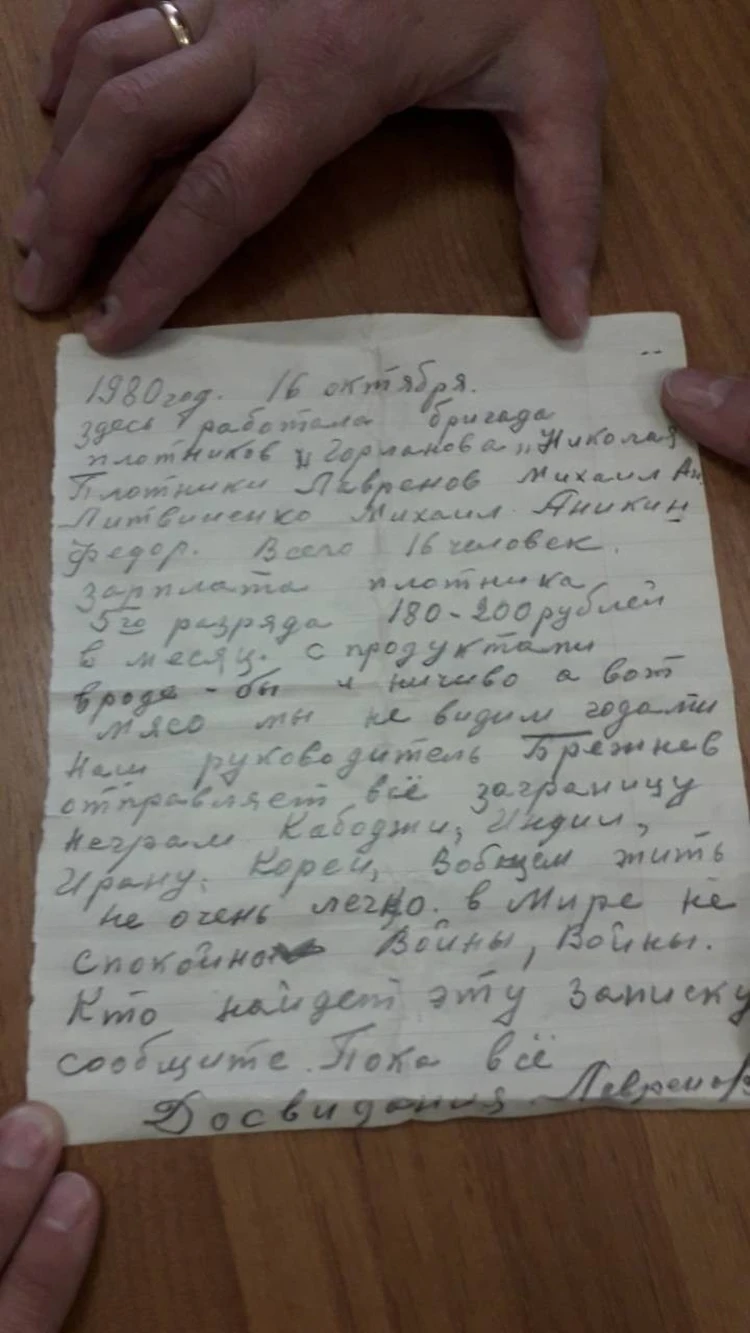 1980 год. 16 октября.
здесь работала бригада
плотников „Горланова„ Николая
Плотники Лавренов Михаил Ан.
Литвиненко Михаил. Аникин
Федор. Всего 16 человек.
зарплата плотника
5го разряда 180-200 рублей
в месяц. с продуктами
вроде-бы и ничиво а вот
мясо мы не видим годами
наш руководитель Брежнев
отправляет всё заграницу
неграм Кабоджи, Индии,
Ирану, Кореи, Вобщем жить
не очень легко. в Мире не
спокойно Войны, Войны.
Кто найдет эту записку
сообщите. Пока всё
Досвидания Лавренов